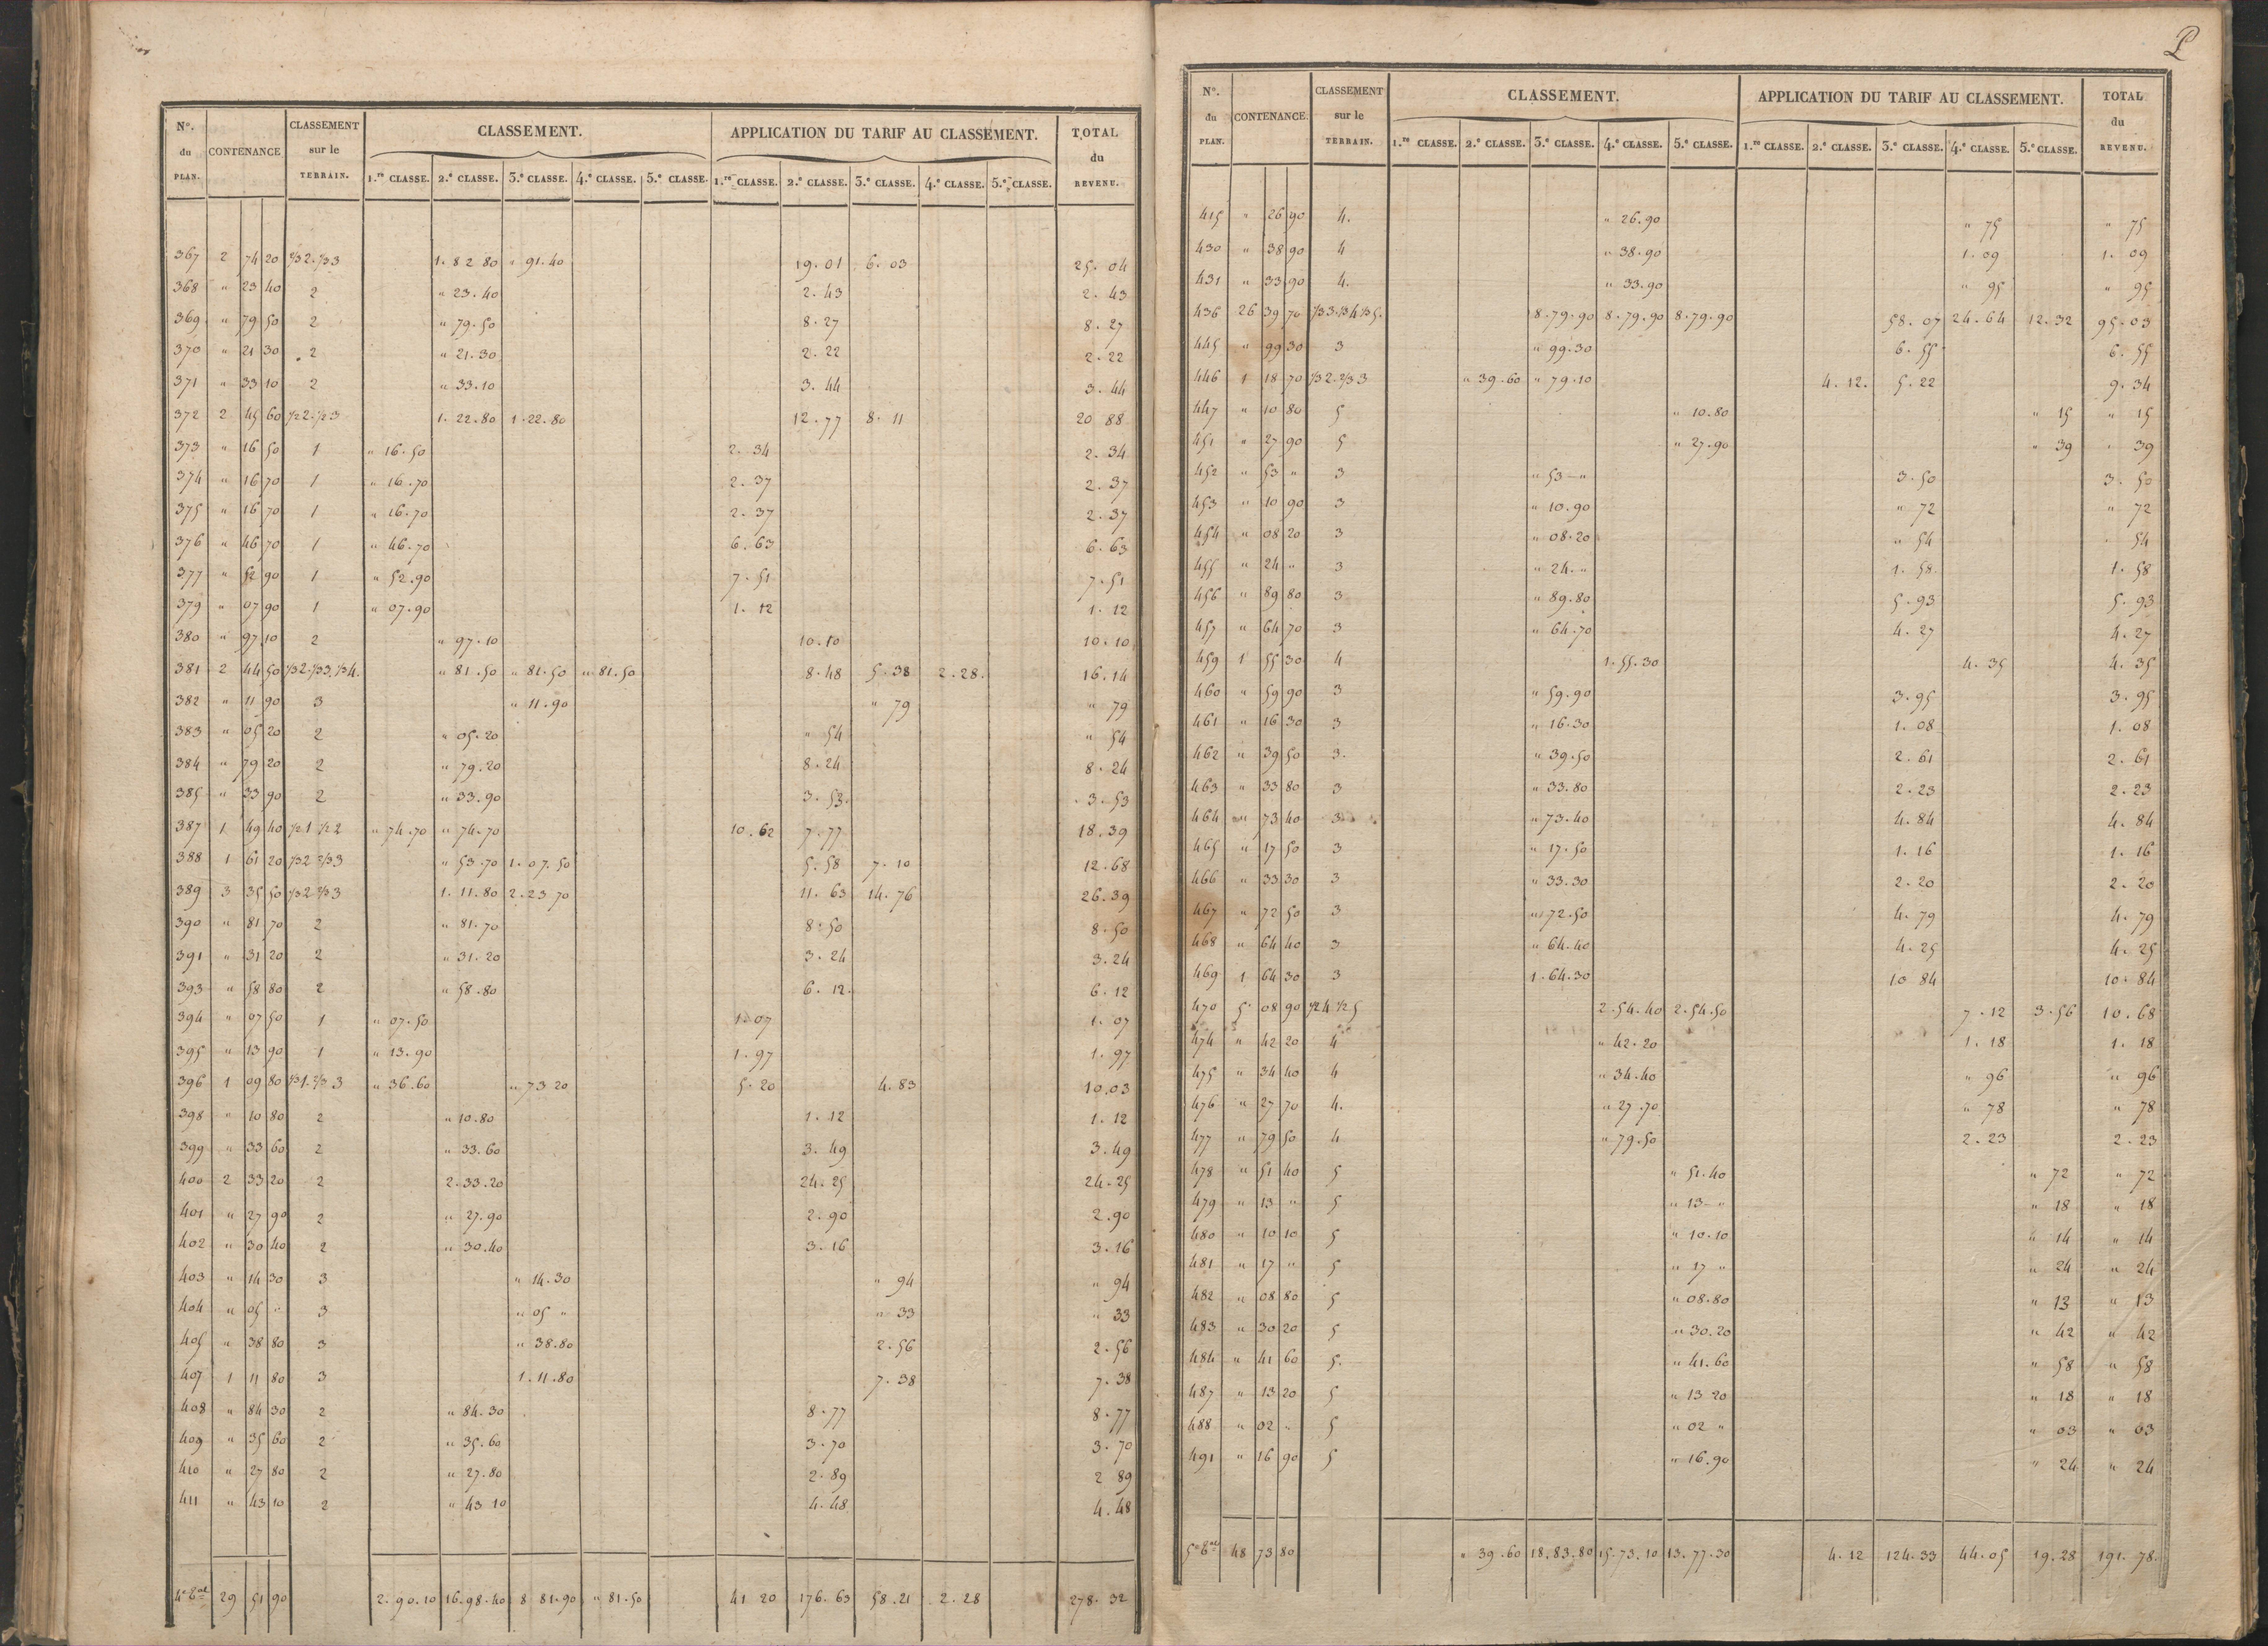 N°. du PLAN. CONTENANCE CLASSEMENT sur le TERRAIN. CLASSEMENT. APPLICATION DU TARIF AU CLASSEMENT. TOTAL du REVENU.
1.re CLASSE. 2.e CLASSE. 3.e CLASSE. 4.e CLASSE. 5.e CLASSE. 1.re CLASSE. 2.e CLASSE. 3.e CLASSE. 4.e CLASSE. 5.e CLASSE.
367 2 74 20 2/32.1/33 1.82 80 " 91.40 19.01 6.03 25.04
368 " 23 40 2 " 23.40 2.43 2.43
369 " 79 50 2 " 79.50 8.27 8.27
370 " 21 30 2 " 21.30 2.22 2.22
371 " 33 10 2 " 33.10 3.44 3.44
372 2 45 60 1/22.1/23 1.22.80 1.22.80 12.77 8.11 20 88
373 " 16 50 1 " 16.50 2.34 2.34
374 " 16 70 1 " 16.70 2.37 2.37
375 " 16 70 1 " 16.70 2.37 2.37
376 " 46 70 1 " 46.70 6.63 6.63
377 " 52 90 1 " 52.90 7.51 7.51
379 " 07 90 1 " 07.90 1.12 1.12
380 " 97 10 2 " 97.10 10.10 10.10
381 2 44 50 1/32.1/33.1/34. " 81.50 " 81.50 " 81.50 8.48 5.38 2.28. 16.14
382 " 11 90 3 " 11.90 " 79 " 79
383 " 05 20 2 " 05.20 " 54 " 54
384 " 79 20 2 " 79.20 8.24 8.24
385 " 33 90 2 " 33.90 3.53. 3.53
387 1 49 40 1/21 1/22 " 74.70 " 74.70 10.62 7.77 18.39
388 1 61 20 1/32 2/33 " 53.70 1.07.50 5.58 7.10 12.68
389 3 35 50 1/32 2/33 1.11.80 2.23 70 11.63 14.76 26.39
390 " 81 70 2 " 81.70 8.50 8.50
391 " 31 20 2 " 31.20 3.24 3.24
393 " 58 80 2 " 58.80 6.12. 6.12
394 " 07 50 1 " 07.50 1.07 1.07
395 " 13 90 1 " 13.90 1.97 1.97
396 1 09 80 1/31.2/33 " 36.60 " 73 20 5.20 4.83 10.03
398 " 10 80 2 " 10.80 1.12 1.12
399 " 33 60 2 " 33.60 3.49 3.49
400 2 33 20 2 2.33.20 24.25 24.25
401 " 27 90 2 " 27.90 2.90 2.90
402 " 30 40 2 " 30.40 3.16 3.16
403 " 14 30 3 " 14.30 " 94 " 94
404 " 05 " 3 " 05 " " 33 " 33
405 " 38 80 3 " 38.80 2.56 2.56
407 1 11 80 3 1.11.80 7.38 7.38
408 " 84 30 2 " 84.30 8.77 8.77
409 " 35 60 2 " 35.60 3.70 3.70
410 " 27 80 2 " 27.80 2.89 2 89
411 " 43 10 2 " 43 10 4.48 4.48
29 51 90 2.90.10 16.98.40 8 81.90 " 81.50 41 20 176.63 58.21 2.28 278.32
N°. du PLAN. CONTENANCE. CLASSEMENT sur le TERRAIN. CLASSEMENT. APPLICATION DU TARIF AU CLASSEMENT. TOTAL du REVENU.
1.re CLASSE. 2.e CLASSE. 3.e CLASSE. 4.e CLASSE. 5.e CLASSE. 1.re CLASSE. 2.e CLASSE. 3.e CLASSE. 4.e CLASSE. 5.e CLASSE.
415 " 26 90 4. " 26.90 " 75 " 75
430 " 38 90 4 " 38.90 1.09 1.09
431 " 33 90 4. " 33.90 " 95 " 95
436 26 39 70 1/33.1/34 1/35. 8.79.90 8.79.90 8.79.90 58.07 24.64 12.32 95.03
445 " 99 30 3 " 99.30 6.55 6.55
446 1 18 70 1/32.2/33 " 39.60 " 79.10 4.12. 5.22 9.34
447 " 10 80 5 " 10.80 " 15 " 15
451 " 27 90 5 " 27.90 " 39 " 39
452 " 53 " 3 " 53 - " 3.50 3.50
453 " 10 90 3 " 10.90 " 72 " 72
454 " 08 20 3 " 08.20 " 54 " 54
455 " 24 " 3 " 24. " 1.58. 1.58
456 " 89 80 3 " 89.80 5.93 5.93
457 " 64 70 3 " 64.70 4.27 4.27
459 1 55 30 4 1.55.30 4.35 4.35
460 " 59 90 3 " 59.90 3.95 3.95
461 " 16 30 3 " 16.30 1.08 1.08
462 " 39 50 3. " 39.50 2.61 2.61
463 " 33 80 3 " 33.80 2.23 2.23
464 " 73 40 3 " 73.40 4.84 4.84
465 " 17 50 3 " 17.50 1.16 1.16
466 " 33 30 3 " 33.30 2.20 2.20
467 " 72 50 3 " 72.50 4.79 4.79
468 " 64 40 3 " 64.40 4.25 4.25
469 1 64 30 3 1.64.30 10 84 10.84
470 5 08 90 1/24.1/25 2.54.40 2.54.50 7.12 3.56 10.68
474 " 42 20 4 " 42.20 1.18 1.18
475 " 34 40 4 " 34.40 " 96 " 96
476 " 27 70 4. " 27.70 " 78 " 78
477 " 79 50 4 " 79.50 2.23 2.23
478 " 51 40 5 " 51.40 " 72 " 72
479 " 13 " 5 " 13 - " " 18 " 18
480 " 10 10 5 " 10.10 " 14 " 14
481 " 17 " 5 " 17 " " 24 " 24
482 " 08 80 5 " 08.80 " 13 " 13
483 " 30 20 5 " 30.20 " 42 " 42
484 " 41 60 5. " 41.60 " 58 " 58
487 " 13 20 5 " 13 20 " 18 " 18
488 " 02 " 5 " 02 " " 03 " 03
491 " 16 90 5 " 16.90 " 24 " 24
48 73 80 " 39.60 18.83.80 15.73.10 13.77.30 4.12 124.33 44.05 19.28 191.78.